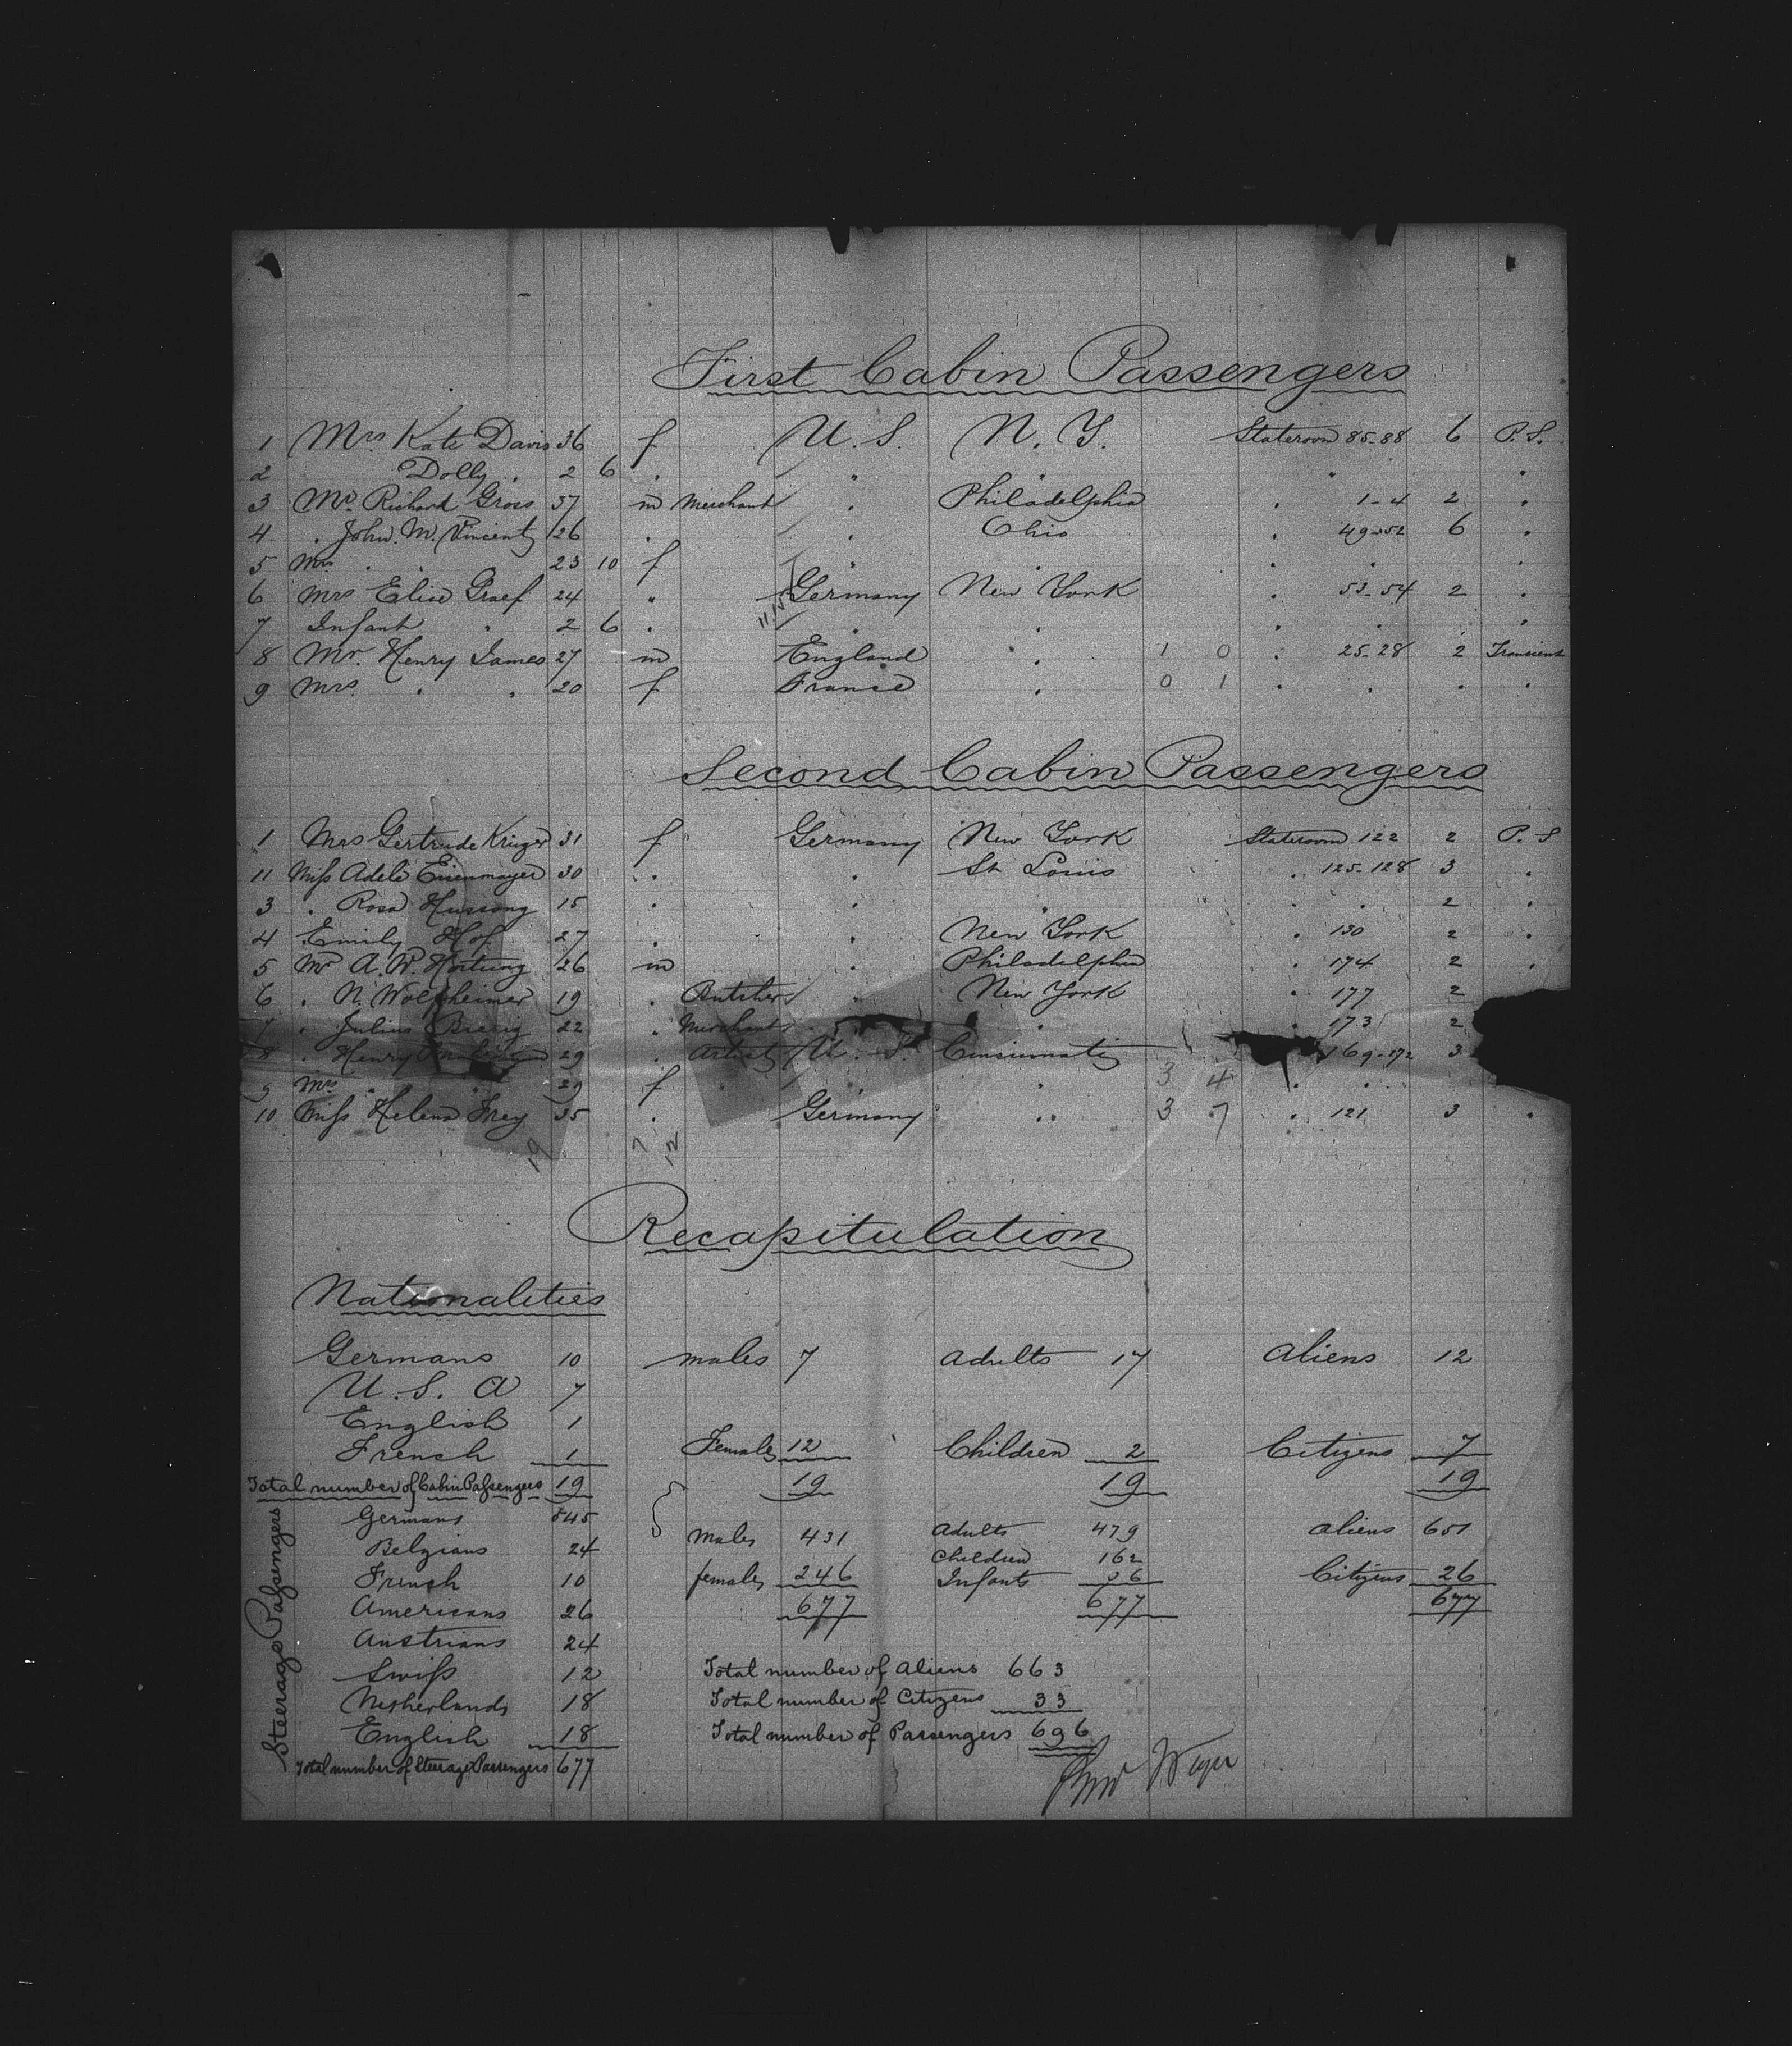 First Cabin Passengers
1 Mrs Kate Davis 36 f U. S. N. Y. Stateroom 85-88 6 P. S.
2 Dolly " 2 6 " " " " "
3 Mr. Richard Gross 37 m Merchant " Philadelphia " 1-4 2 "
4 " John. M. Vincent 26 " " Ohio " 49-52 6 "
5 Mrs " " 23 10 f " " " " "
6 Mrs Elise Graef 24 " Germany New York " 53-54 2 "
7 Infant " 2 6 " " " " " " "
8 Mr. Henry James 27 m England " 1 0 " 25-28 2 Transient
9 Mrs. " " 20 f France " 0 1 " " " "
Second Cabin Passengers
1 Mrs Gertrude Kruger 31 f Germany New York Stateroom 122 2 P. S
11 Miss Adele Eisenmayer 30 " " St Louis " 125-128 3 "
3 " Rosa Hussong 15 " " " " " 2 "
4 Emily Hof 27 " " New York " 130 2 "
5 Mr A. W. Hartung 26 m " Philadelphia " 174 2 "
6 " N. Wolfsheimer 19 " Butcher " New York " 177 2
7 " Julius 22 " Merchant " " " 173 2
8 " Henry 29 " Artist U. S. Cincinnati 169-172 3
9 Mrs " " 29 f " " " 3 4 " "
10 Miss Helena Frey 35 " Germany " 3 7 " 121 3 "
19 7 12
Recapitulation
Nationalities
Germans 10 males 7 Adults 17 Aliens 12
U. S. A 7
English 1
French 1 Females 12 Children 2 Citizens 7
Total number of Cabin Passengers 19 19 19 19
Steerage Passengers
Germans 545 Males 431 Adults 479 Aliens 651
Belgians 24 Children 162
French 10 females 246 Infants 36 Citizens 26
Americans 26 677 677 677
Austrians 24
Swiss 12 Total number of Aliens 663
Netherlands 18 Total number of Citizens 33
English 18 Total number of Passengers 696
Total number of Steerage Passengers 677